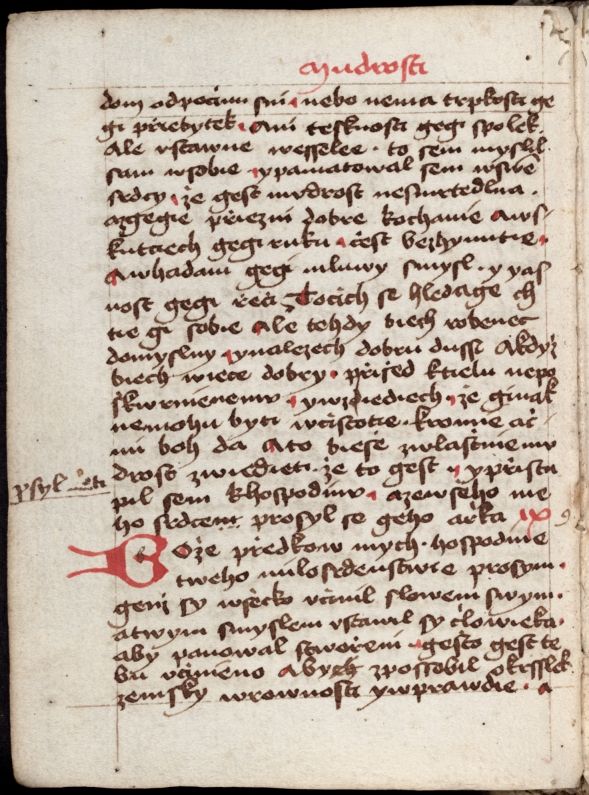 Mudrosti
dom odpočinu sni nebo nema trpkosti ge
gi přiebytek ani tesknosti gegi spolek
ale vstawne wesselee to sem myslil
sam wsobie ypamatowal sem wswe
srdcy že gest mvdrost nesmrtedlna
azgegie přiezni dobre kochanie aws
kutciech gegi ruku čest bezhynutie
awhadani gegi mluwy smysl y yas
nost gegi řeči Točich se hledage ch
tie gi sobie ale tehdy biech robenec
domyslny ynalezech dobru dussi Akdyž
biech wiece dobry přišed ktielu nepo
škwrnienemv ywzwiediech že ginak
nemohu byti wčistotie kromie ač
mi boh da Ato bieše zwlastnie mv
drost zwiedieti že to gest ypřistu
pil sem khospodinv azewšeho me
ho srdcem prosyl se geho a řka IX
Bože předkow mych hospodine
tweho milosrdenstwie prosym
genž sy wšecko včinil slowem swym
atwym smyslem vstawil sy člowieka
aby panowal stwořeni gešto gest te
bu včineno Abych zpossobil okrsslek
zemsky wrownosti ywprawdie a